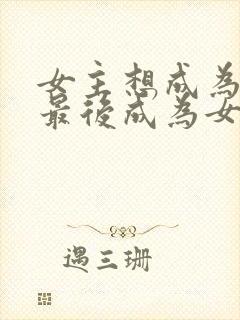 女主想成為
最後成為女
遇三珊